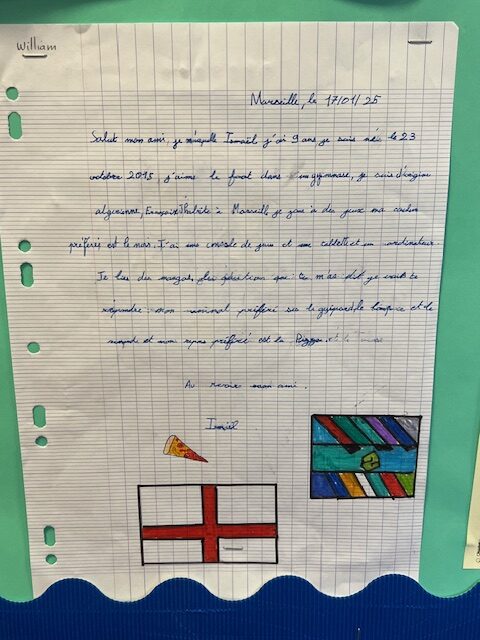 William
Marseille, le 17/01/25
Salut mon ami, je m'appelle Ismaël j'ai 9 ans je suis née le 23
octobre 2015, j'aime le foot dans gymnase, je suis d'origine
algerienne, J'habite à Marseille je joue à des jeux ma couleur
préférés est le noir. J'ai une console de jeux et une tablette et un ordinateur
Je lis des mangas, les questions que tu m'as dit je vais te
répondre mon animal préféré est le guépard le et le
et mon repas préféré est la Pizza et le
Au revoir mon ami.
Ismaël